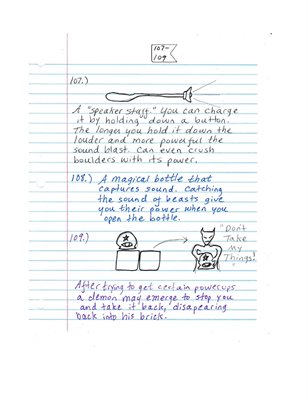 107-
109
107.)
A "speaker staff." You can charge
it by holding down a button.
The longer you hold it down the
louder and more powerful the
sound blast. Can even crush
boulders with its power.
108.) A magical bottle that
captures sound. Catching
the sound of beasts give
you their power when you
open the bottle.
109.)
"Don't
Take
My
Things!"
After trying to get certain powerups
a demon may emerge to stop you
and take it back, disapearing
back into his brick.